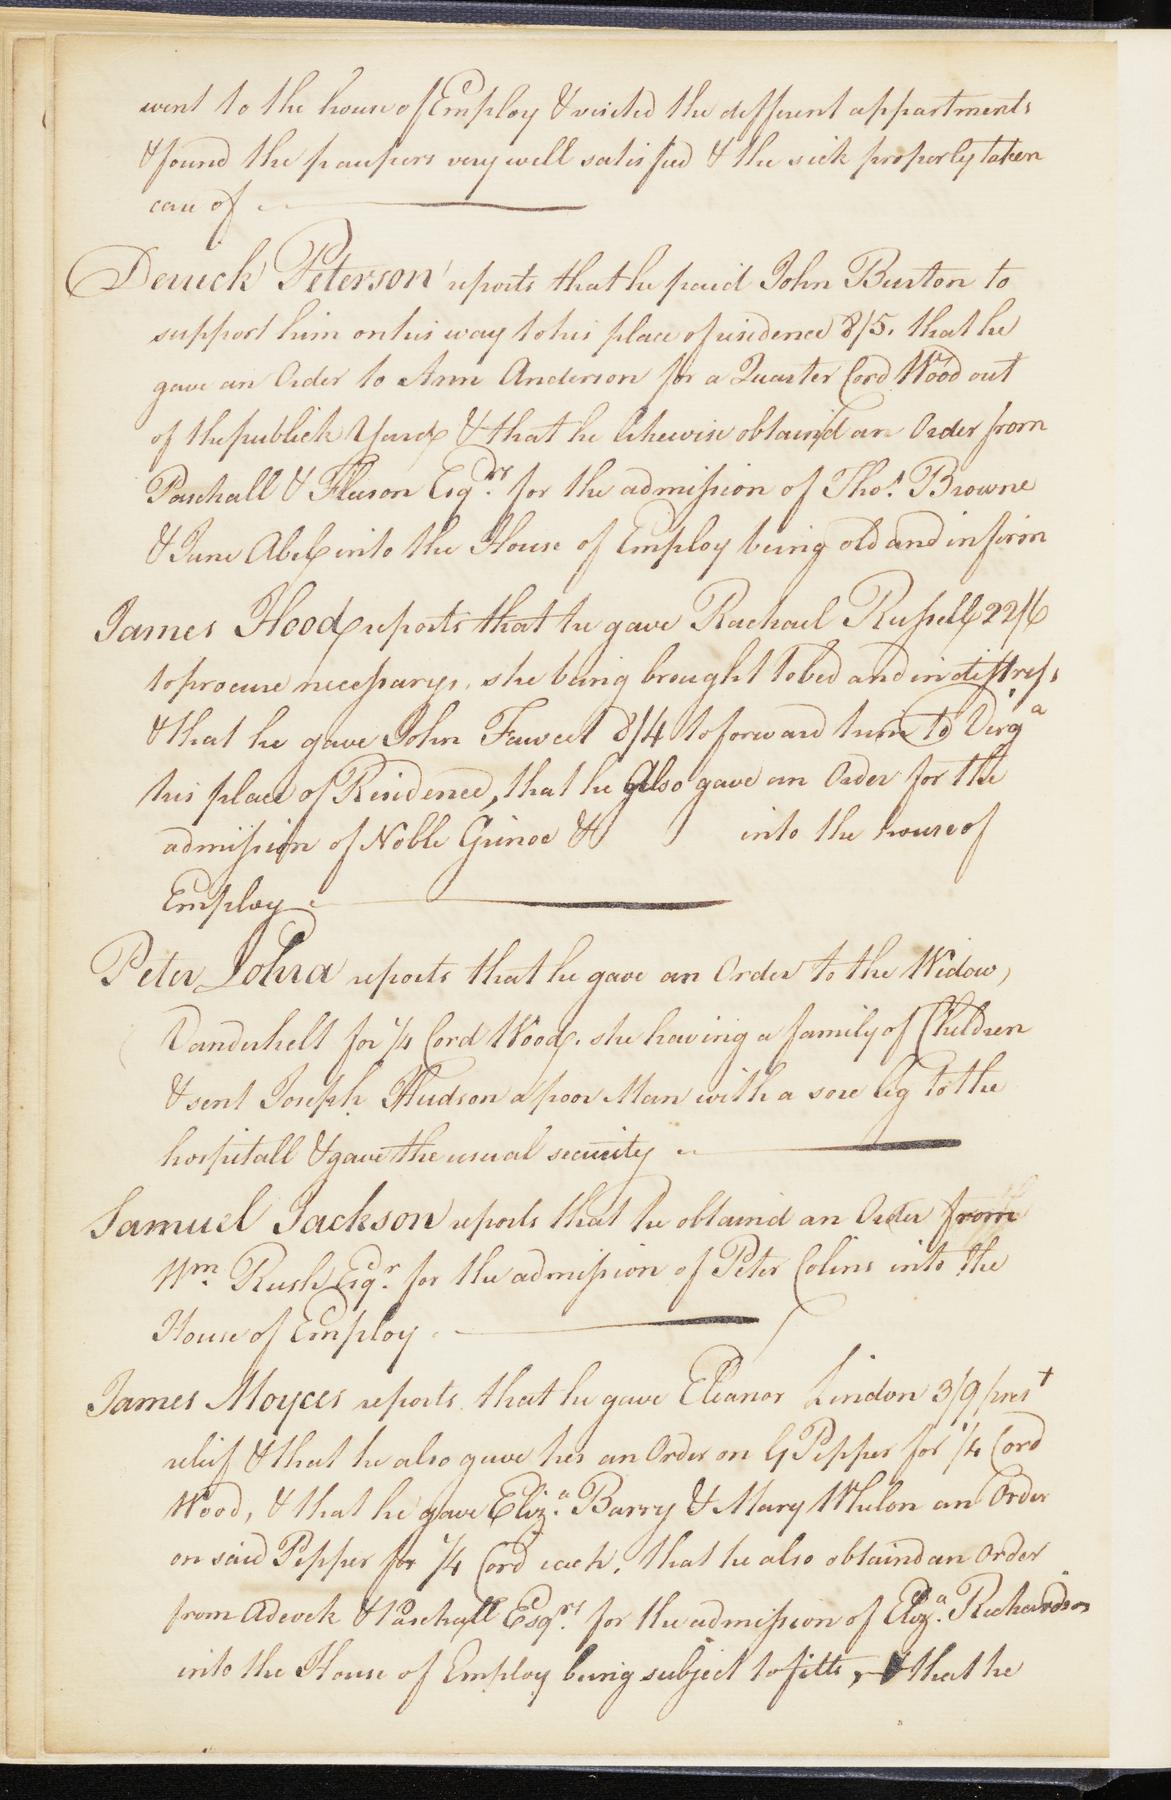 went to the house of Employ & visited the different appartments
& found the paupers very well satisfied & the sick properly taken
care of
Derrick Peterson reports that he paid John Burton to
support him on his way to his place of residence 8/5. that he
gave an Order to Ann Anderson for a Quarter Cord Wood out
of the publick Yard & that he likewise obtain'd an Order from
Paschall & Fleeson Esqrs. for the admission of Thos. Browne
& Jane Abel into the House of Employ being old and infirm
James Hood reports that he gave Rachael Russell 22/6
to procure necessarys, she being brought to bed and in distress
& that he gave John Fawcet 8/4 to forward him to Virga
his place of Residence, that he also gave an Order for the
admission of Noble & into the house of
Employ
Peter reports that he gave an Order to the Widow
Vanderhelt for 1/4 Cord Wood, she having a family of Children
& sent Joseph Hudson a poor Man with a sore leg to the
hospitall & gave the usual security
Samuel Jackson reports that he obtaind an Order from
Wm. Rush Esqr. for the admission of Peter Colins into the
House of Employ
James Moyces reports that he gave Eleanor Lindon 3/9 prest
relief & that he also gave her an Order on G Pepper for 1/4 Cord
Wood, & that he gave Eliza. Barry & Mary Whelon an Order
on said Pepper for 1/4 Cord each, that he also obtaind an Order
from Adcock & Paschall Esqrs. for the admission of Eliza. Richardson
into the House of Employ being subject to fitts, & that he